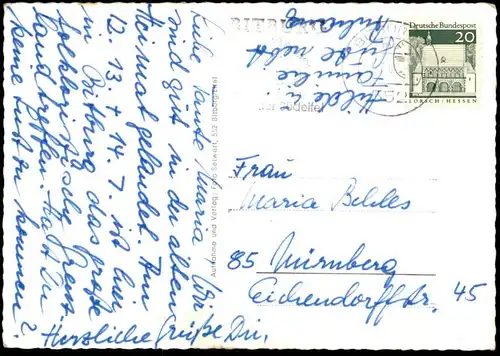 Liebe Tante Maria, Wir
sind gut in der alten
Heimat gelandet. Am
12. 13. + 14. 7. ist hier
in Bitburg das große
folkloristische Grenz-
landtreffen. Hast Du
keine Lust zu kommen?
Herzliche Grüße Dir,
Hilde u.
Familie
BITBURG
der Südeifel
Deutsche Bundespost
20
LORSCH / HESSEN
Aufnahme und Verlag: Foto Seiwert, 552 Bitburg/Eifel
Frau
Maria
85 Nürnberg
Eichendorffstr. 45